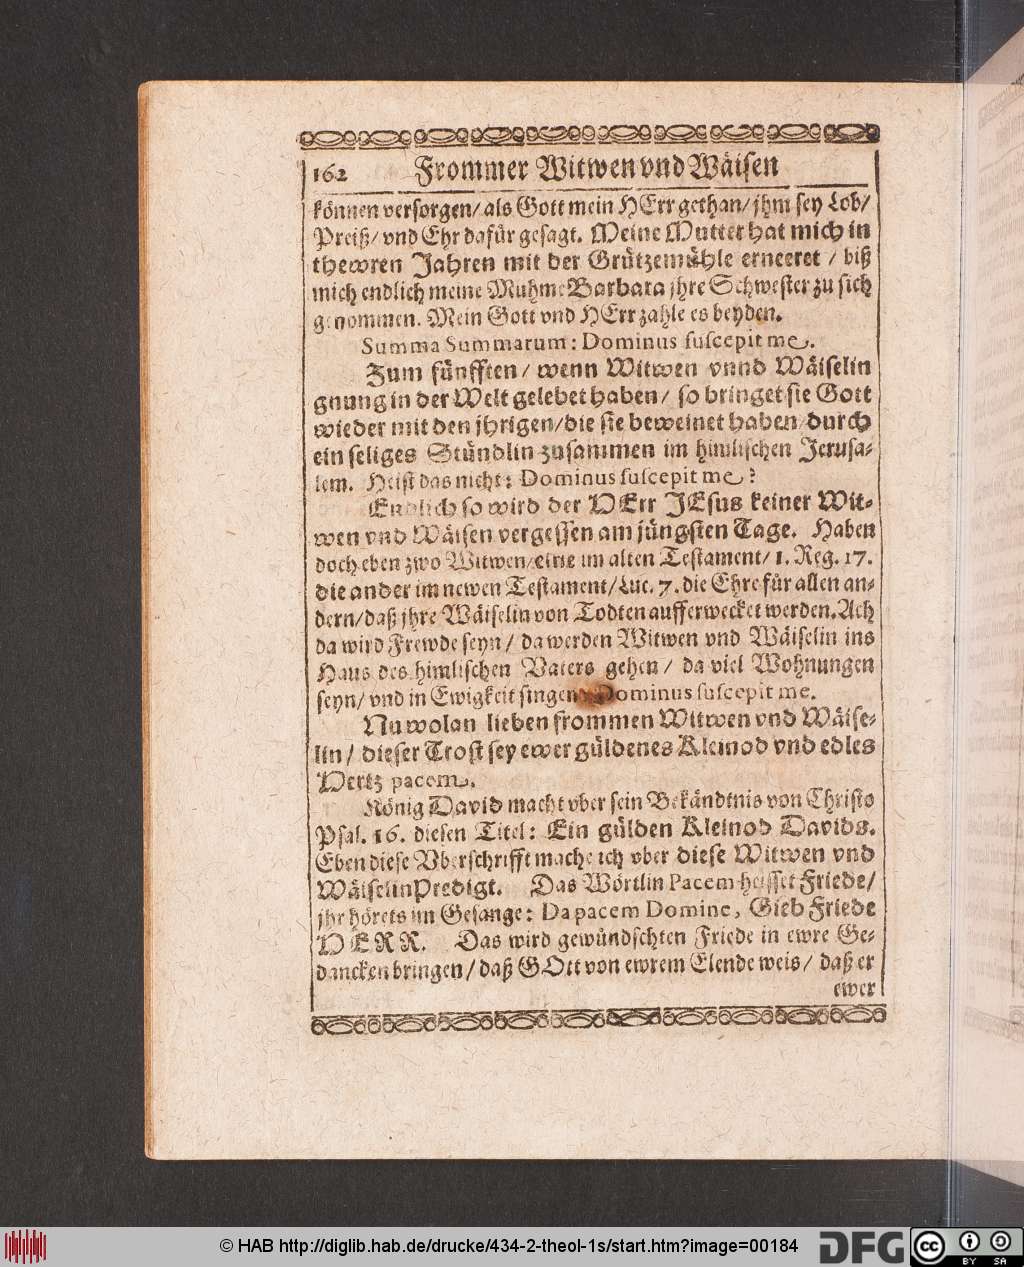 162 Frommer Witwen vnd Wäisen
können versorgen/ als Gott mein HErr gethan/ jhm sey Lob/
Preiß/ vnd Ehr dafür gesagt. Meine Mutter hat mich in
thewren Jahren mit der Grützemühle erneeret / biß
mich endlich meine Muhme Barbara jhre Schwester zu sich
genommen. Mein Gott vnd HErr zahle es beyden.
Summa Summarum: Dominus suscepit me.
Zum fünfften/ wenn Witwen vnnd Wäiselin
gnung in der Welt gelebet haben/ so bringet sie Gott
wieder mit den jhrigen/ die sie beweinet haben/ durch
ein seliges Stündlin zusammen im himlischen Jerusa-
lem. Heist das nicht: Dominus suscepit me?
Endlich so wird der HErr JEsus keiner Wit-
wen vnd Wäisen vergessen am jüngsten Tage. Haben
doch eben zwo Witwen/ eine im alten Testament/ 1. Reg. 17.
die ander im newen Testament/ Luc. 7. die Ehre für allen an-
dern/ daß jhre Wäiselin von Todten aufferwecket werden. Ach
da wird Frewde seyn/ da werden Witwen vnd Wäiselin ins
Haus des himlischen Vaters gehen/ da viel Wohnungen
seyn/ vnd in Ewigkeit singen: Dominus suscepit me.
Nu wolan lieben frommen Witwen vnd Wäise-
lin/ dieser Trost sey ewer güldenes Kleinod vnd edles
Hertz pacem.
König David macht vber sein Bekändtnis von Christo
Psal. 16. diesen Titel: Ein gülden Kleinod Davids.
Eben diese Vberschrifft mache ich vber diese Witwen vnd
Wäiselin Predigt. Das Wörtlin Pacem heisset Friede/
jhr hörets im Gesange: Da pacem Domine, Gieb Friede
HERR. Das wird gewündschten Friede in ewre Ge-
dancken bringen/ daß GOtt von ewrem Elende weis/ daß er
ewer
© HAB http://diglib.hab.de/drucke/434-2-theol-1s/start.htm?image=00184
DFG
cc
BY SA